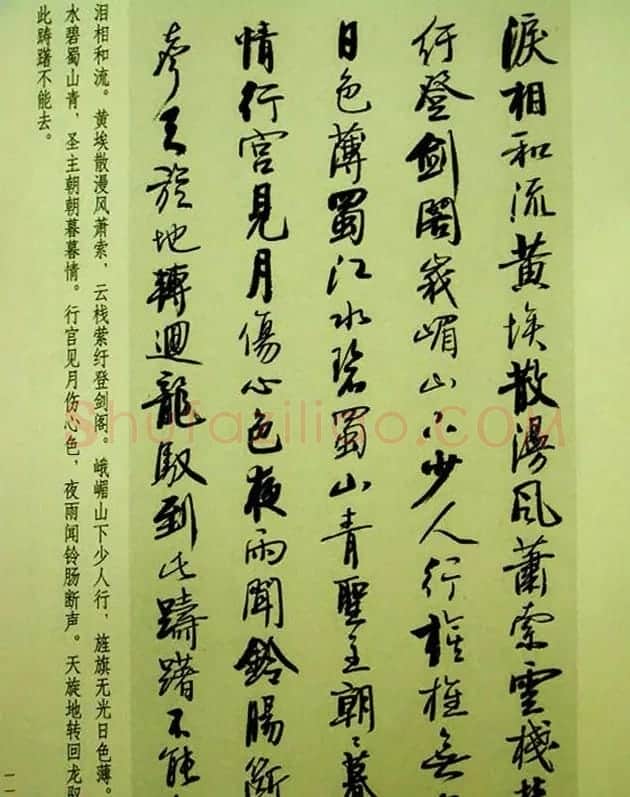 淚相和流黃埃散漫風蕭索雲棧
紆登劍閣峩嵋山下少人行旌旗無
日色薄蜀江水碧蜀山青聖主朝〻暮
情行宮見月傷心色夜雨聞鈴腸斷
聲天旋地轉迴龍馭到此躊躇不能
泪相和流。黄埃散漫风萧索，云栈萦纡登剑阁。峨嵋山下少人行，旌旗无光日色薄。
水碧蜀山青，圣主朝朝暮暮情。行宫见月伤心色，夜雨闻铃肠断声。天旋地转回龙驭
此踌躇不能去。
Shufaziliao.COM